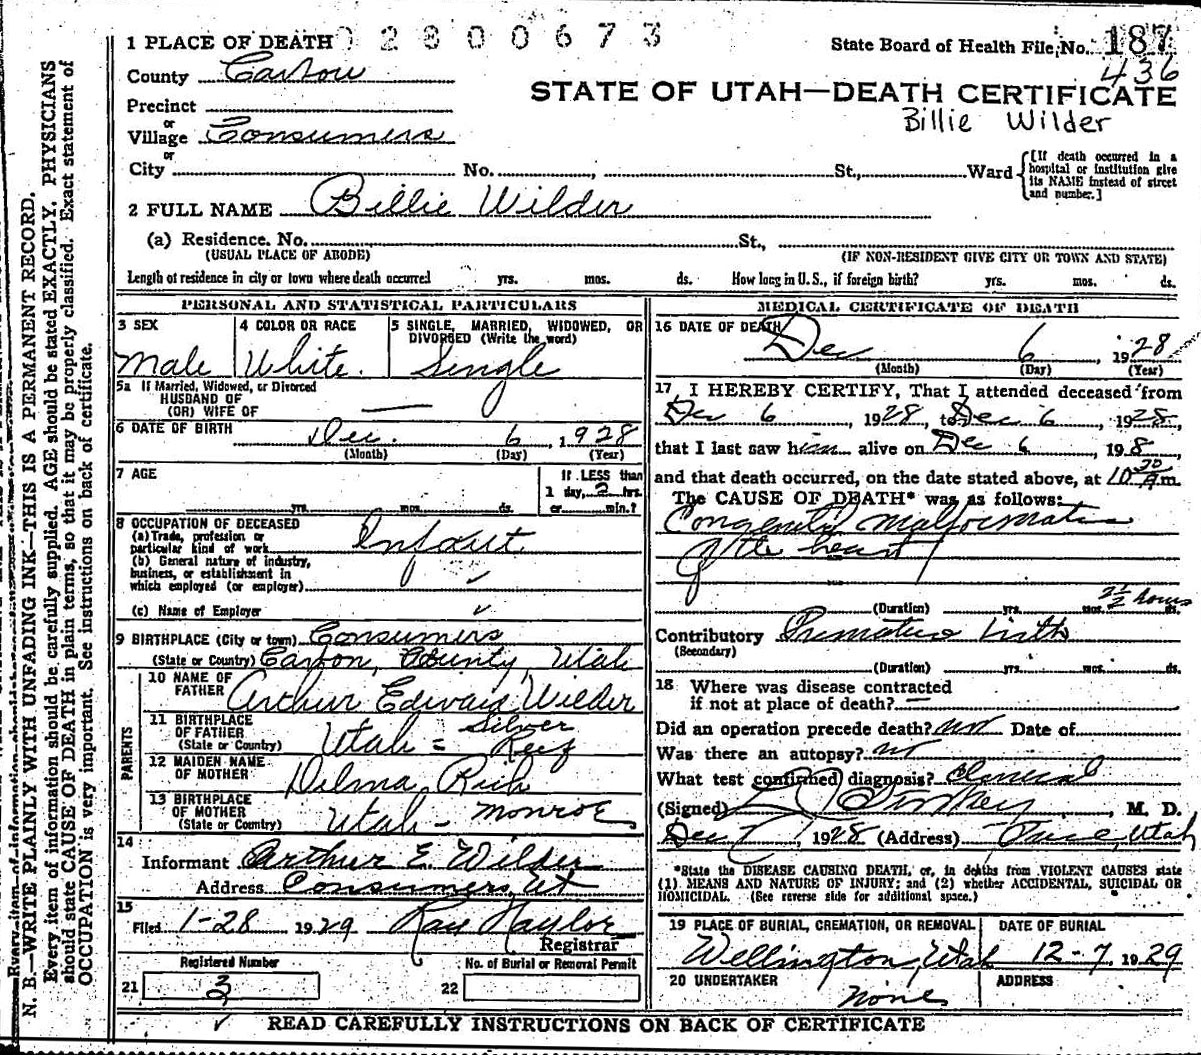 1 PLACE OF DEATH 02800673
State Board of Health File No. 187
436
County Carbon
STATE OF UTAH—DEATH CERTIFICATE
Precinct
or
Billie Wilder
Village Consumers
or
City No. , St., Ward {[If death occurred in a hospital or institution give its NAME instead of street and number.]
2 FULL NAME Billie Wilder
(a) Residence. No. St.,
(USUAL PLACE OF ABODE) (IF NON-RESIDENT GIVE CITY OR TOWN AND STATE)
Length of residence in city or town where death occurred yrs. mos. ds. How long in U. S., if foreign birth? yrs. mos. ds.
PERSONAL AND STATISTICAL PARTICULARS
3 SEX 4 COLOR OR RACE 5 SINGLE, MARRIED, WIDOWED, OR
DIVORCED (Write the word)
Male White. Single
5a If Married, Widowed, or Divorced
HUSBAND OF
(OR) WIFE OF —
6 DATE OF BIRTH Dec. 6, 1928
(Month) (Day) (Year)
7 AGE If LESS than
1 day, 2 hrs.
yrs. mos. ds. or min.?
8 OCCUPATION OF DECEASED
(a) Trade, profession or
particular kind of work Infant
(b) General nature of industry,
business, or establishment in
which employed (or employer) ✓
(c) Name of Employer ✓
9 BIRTHPLACE (City or town) Consumers
(State or Country) Carbon, County, Utah
PARENTS
10 NAME OF
FATHER Arthur Edward Wilder
11 BIRTHPLACE
OF FATHER
(State or Country) Utah = Silver
Reef
12 MAIDEN NAME
OF MOTHER Delma Rich
13 BIRTHPLACE
OF MOTHER
(State or Country) Utah - Monroe
14
Informant Arthur E. Wilder
Address Consumers, Ut
15
Filed 1-28 1929 Ray Naylor
Registrar
Registered Number No. of Burial or Removal Permit
21 3 22
MEDICAL CERTIFICATE OF DEATH
16 DATE OF DEATH
Dec 6, 1928
(Month) (Day) (Year)
17 I HEREBY CERTIFY, That I attended deceased from
Dec 6, 1928, to Dec 6, 1928,
that I last saw him alive on Dec 6, 198,
and that death occurred, on the date stated above, at 10 20 Am
The CAUSE OF DEATH* was as follows:
Congenital malformation
of the heart
(Duration) yrs. mos. 2 1/2 hours
Contributory Premature birth
(Secondary)
(Duration) yrs. mos. ds.
18 Where was disease contracted
if not at place of death? —
Did an operation precede death? no Date of
Was there an autopsy? no
What test confirmed diagnosis? Clinical
(Signed) M. D.
Dec 7, 1928 (Address) Price, Utah
*State the DISEASE CAUSING DEATH, or, in deaths from VIOLENT CAUSES state
(1) MEANS AND NATURE OF INJURY; and (2) whether ACCIDENTAL, SUICIDAL OR
HOMICIDAL. (See reverse side for additional space.)
19 PLACE OF BURIAL, CREMATION, OR REMOVAL DATE OF BURIAL
Wellington, Utah 12-7, 1929
20 UNDERTAKER ADDRESS
none
✓ READ CAREFULLY INSTRUCTIONS ON BACK OF CERTIFICATE
N. B.—WRITE PLAINLY WITH UNFADING INK—THIS IS A PERMANENT RECORD.
Every item of information should be carefully supplied. AGE should be stated EXACTLY. PHYSICIANS
should state CAUSE OF DEATH in plain terms, so that it may be properly classified. Exact statement of
OCCUPATION is very important. See instructions on back of certificate.